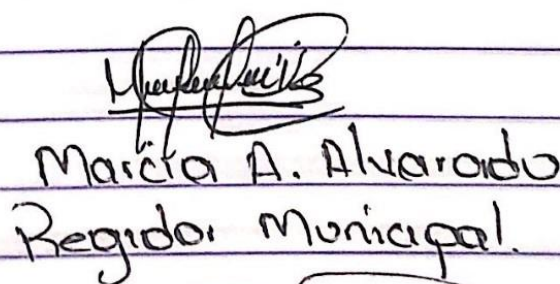 Marcia A. Alvarado
Regidor Municipal.